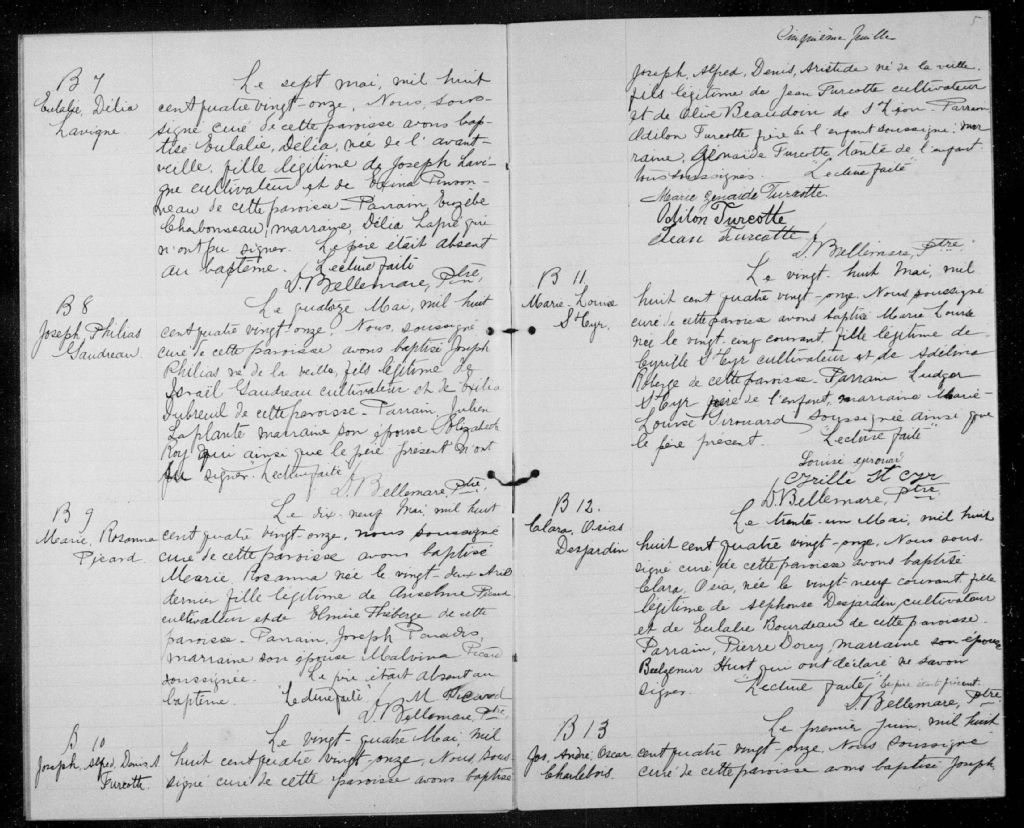 B 7
Eulalie, Délia
Lavigne
Le sept mai, mil huit
cent quatre vingt-onze, Nous, sous-
signé curé de cette paroisse avons bap-
tisé Eulalie, Délia, née de l'avant-
veille, fille légitime de Joseph Lavi-
gne cultivateur et de Exina Pinson-
neau de cette paroisse - Parrain, Euzèbe
Charbonneau, marraine, Délia Lapré qui
n'ont pu signer. Le père était absent
au baptême. Lecture faite
D. Bellemare, Ptre
B 8
Joseph, Philias
Gaudreau
Le quatorze Mai, mil huit
cent quatre vingt-onze, Nous, soussigné
curé de cette paroisse avons baptisé Joseph
Philias né de la veille, fils légitime de
Israël Gaudreau cultivateur et de Exilia
Dubreuil de cette paroisse - Parrain, Julien
Laplante marraine son épouse Elizabeth
Roy qui ainsi que le père présent n'ont
pu signer. Lecture faite
D. Bellemare, Ptre
B 9
Marie, Rosanna
Picard
Le dix-neuf Mai mil huit
cent quatre vingt-onze, nous soussigné
curé de cette paroisse avons baptisé
Marie Rosanna née le vingt-deux Avril
dernier fille légitime de Anselme Picard
cultivateur et de Elmire Théberge de cette
paroisse - Parrain, Joseph Paradis,
marraine son épouse Malvina Picard
soussignée. Le père était absent au
baptême. "Lecture faite" M Picard
D. Bellemare, Ptre
B 10
Joseph, Alfred, Denis A
Turcotte
Le vingt-quatre Mai, mil
huit cent quatre vingt-onze, Nous, sous-
signé curé de cette paroisse avons baptisé
5
Cinquième feuille
Joseph, Alfred, Denis, Aristide né de la veille,
fils légitime de Jean Turcotte cultivateur
et de Olive Beaudoin de St Léon - Parrain
Odilon Turcotte frère de l'enfant soussigné; mar-
raine, Génaïde Turcotte, tante de l'enfant
tous soussignés. "Lecture faite"
Marie Genaide Turcotte
Odilon Turcotte
Jean Turcotte
D. Bellemare, Ptre
B 11
Marie-Louise
St Cyr
Le vingt-huit Mai, mil
huit cent quatre vingt-onze, Nous soussigné
curé de cette paroisse avons baptisé Marie Louise
née le vingt-cinq courant, fille légitime de
Cyrille St Cyr cultivateur et de Adélina
Roberge de cette paroisse - Parrain Ludger
St Cyr frère de l'enfant, marraine Marie-
Louise Girouard soussignée ainsi que
le père présent. "Lecture faite"
Louise girouard
Cyrille St Cyr
D. Bellemare, Ptre
B 12.
Clara, Osias
Desjardin
Le trente-un Mai, mil huit
huit cent quatre vingt-onze, Nous sous-
signé curé de cette paroisse avons baptisé
Clara, Osia, née le vingt-neuf courant, fille
légitime de Alphonse Desjardin, cultivateur
et de Eulalie Bourdeau de cette paroisse.
Parrain, Pierre Dorey, marraine son épouse
Huot qui ont déclaré ne savoir
signer. "Lecture faite" Le père était présent
D. Bellemare, Ptre
B 13
Jos. André, Oscar
Charlebois
Le premier Juin, mil huit
cent quatre vingt-onze, Nous soussigné
curé de cette paroisse avons baptisé Joseph